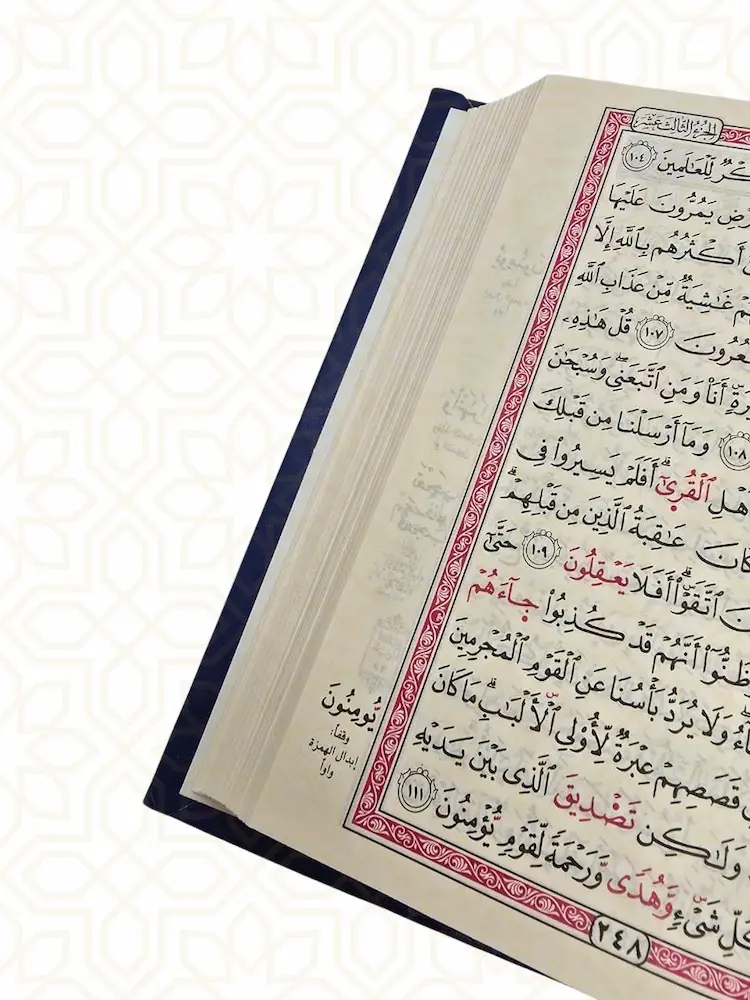 الجزء الثالث عشر
كْرٌ لِّلْعَٰلَمِينَ ١٠٤
رْضِ يَمُرُّونَ عَلَيْهَا
أَكْثَرُهُم بِٱللَّهِ إِلَّا
هُمْ غَٰشِيَةٌ مِّنْ عَذَابِ ٱللَّهِ
عُرُونَ ١٠٧ قُلْ هَٰذِهِۦ
رَةٍ أَنَا۠ وَمَنِ ٱتَّبَعَنِى وَسُبْحَٰنَ
١٠٨ وَمَآ أَرْسَلْنَا مِن قَبْلِكَ
هْلِ ٱلْقُرَىٰٓ أَفَلَمْ يَسِيرُوا۟ فِى
كَانَ عَٰقِبَةُ ٱلَّذِينَ مِن قَبْلِهِمْ
نَ ٱتَّقَوْا۟ أَفَلَا يَعْقِلُونَ ١٠٩ حَتَّىٰٓ
ظَنُّوٓا۟ أَنَّهُمْ قَدْ كُذِبُوا۟ جَآءَهُمْ
آءُ وَلَا يُرَدُّ بَأْسُنَا عَنِ ٱلْقَوْمِ ٱلْمُجْرِمِينَ
قَصَصِهِمْ عِبْرَةٌ لِّأُو۟لِى ٱلْأَلْبَٰبِ مَا كَانَ
وَلَٰكِن تَصْدِيقَ ٱلَّذِى بَيْنَ يَدَيْهِ
كُلِّ شَىْءٍ وَهُدًى وَرَحْمَةً لِّقَوْمٍ يُؤْمِنُونَ ١١١
٢٤٨
يُومِنُونَ
وقفاً:
إبدال الهمزة
واواً